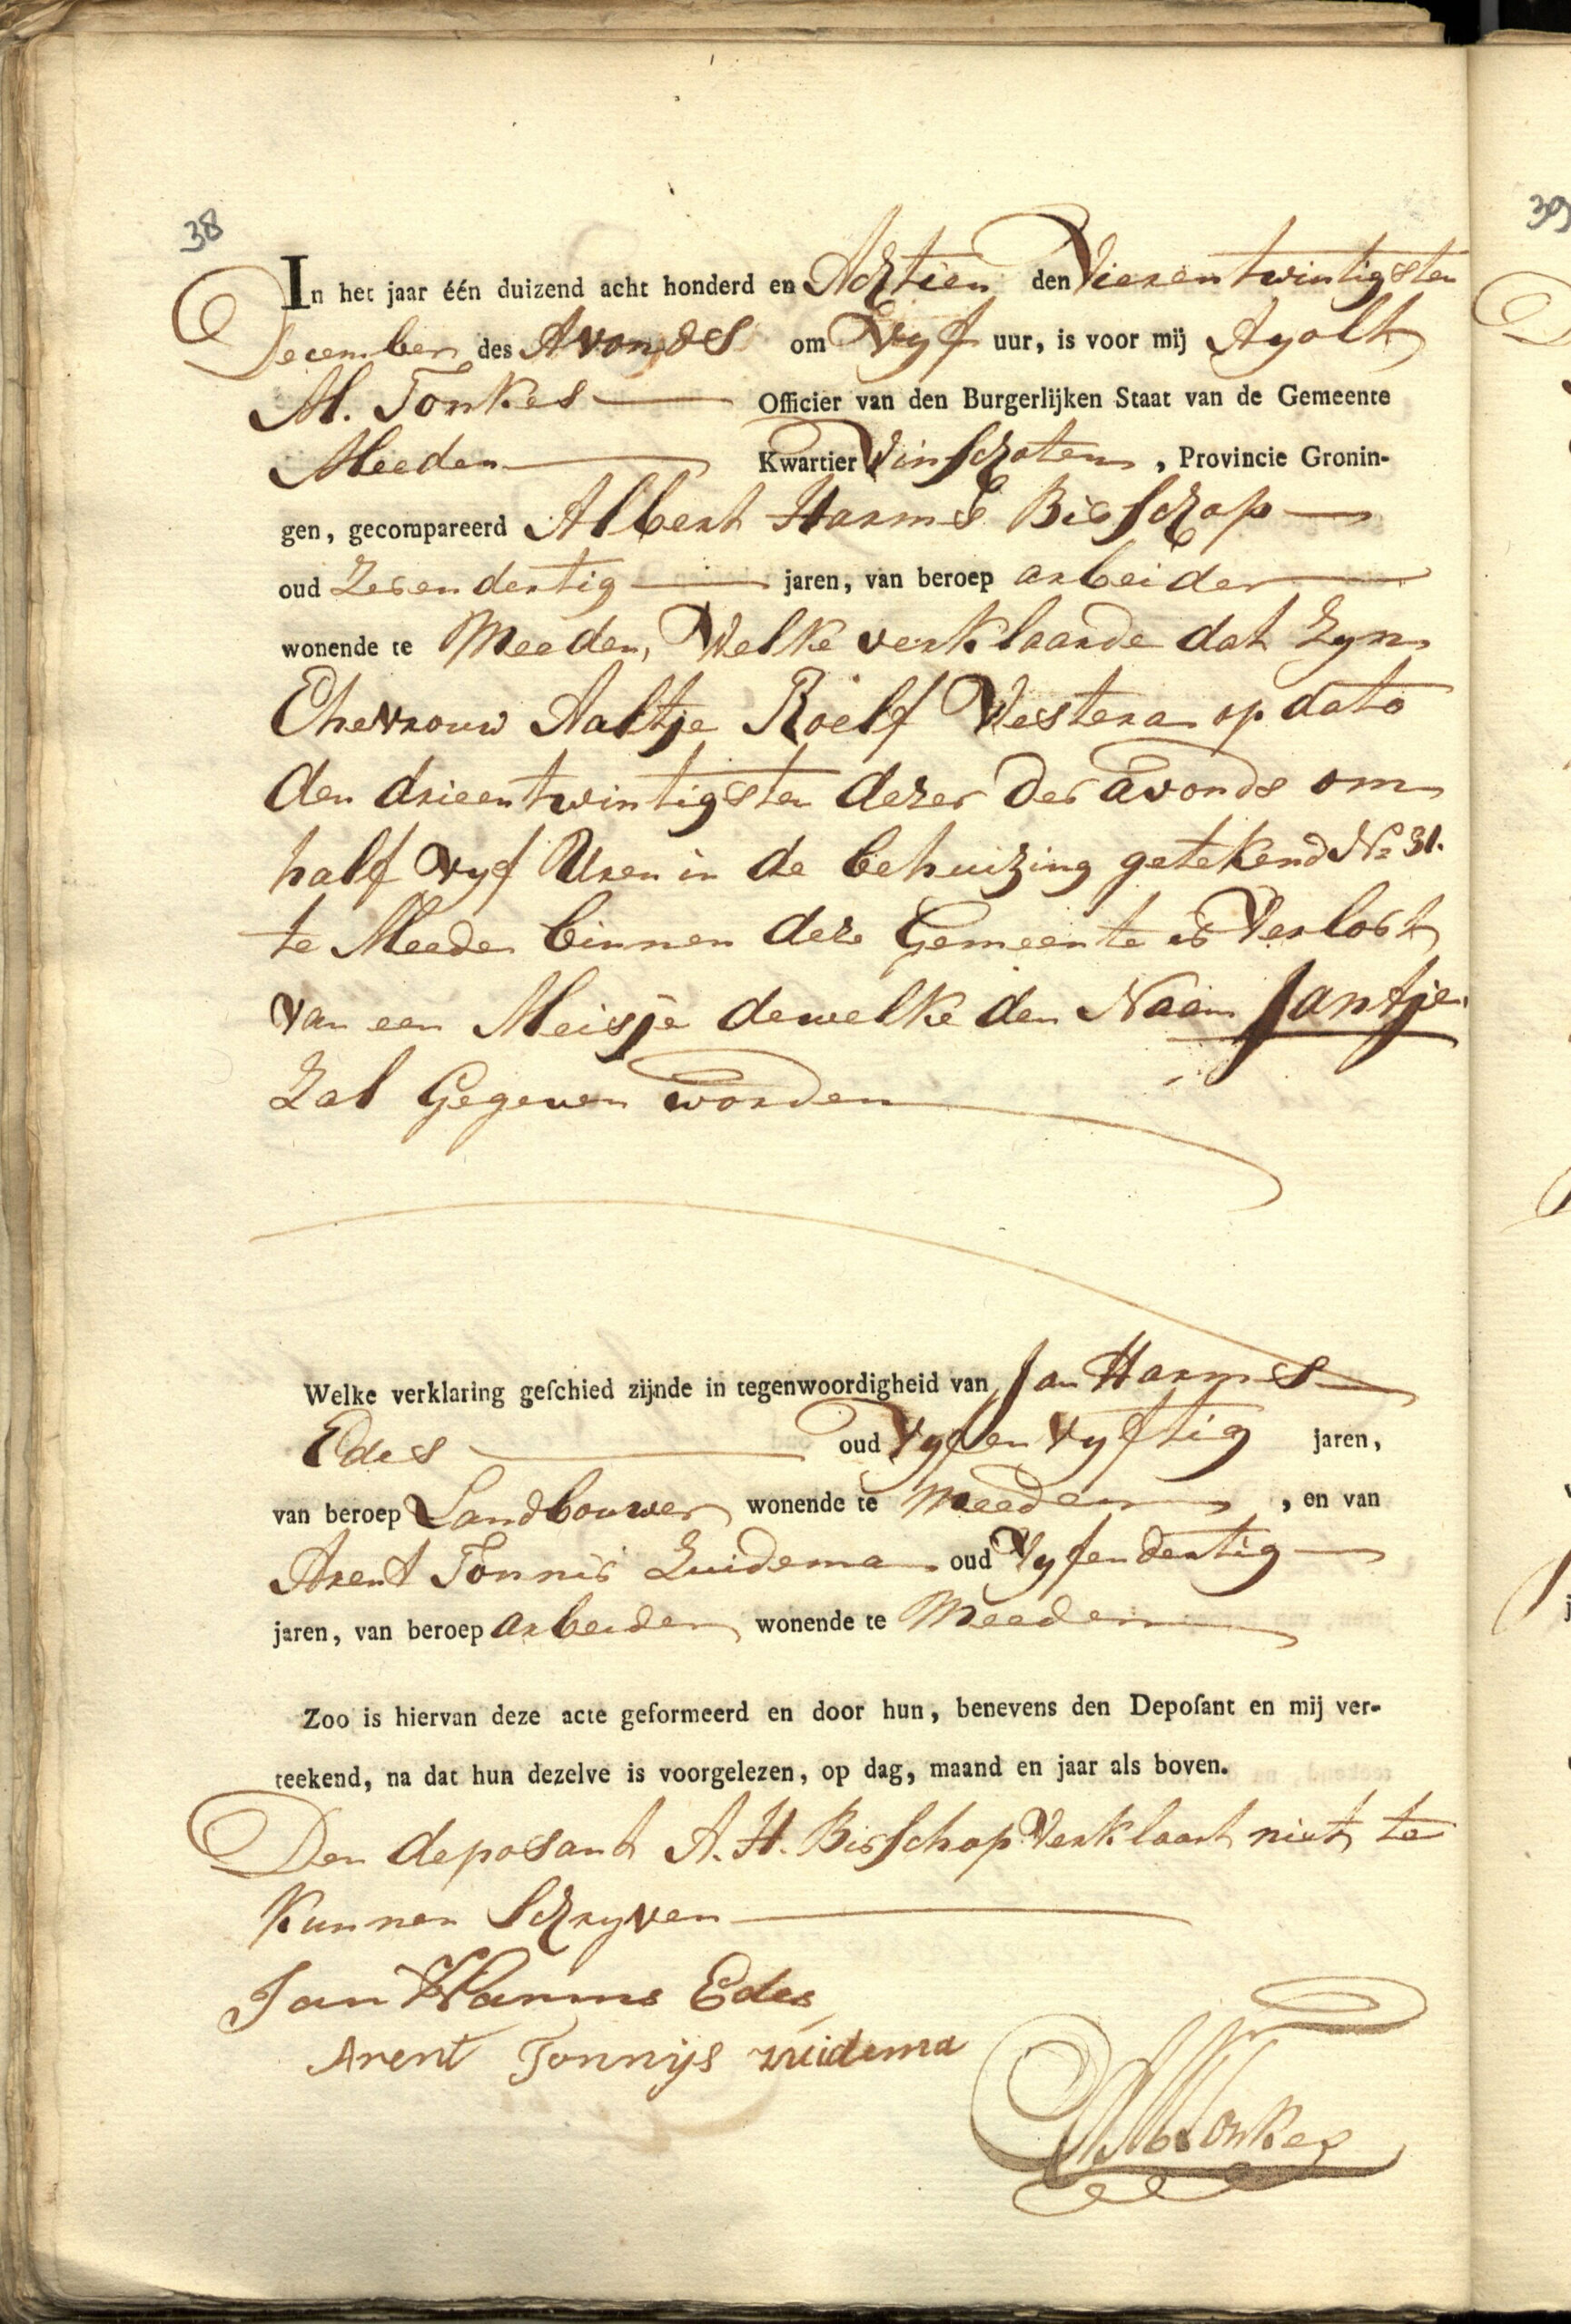 38
39
In het jaar één duizend acht honderd en Achtien den Vierentwintigsten
December des Avonds om Vyf uur, is voor mij Ayolt
M. Tonkes Officier van den Burgerlijken Staat van de Gemeente
Meeden Kwartier Winschoten, Provincie Gronin-
gen, gecompareerd Albert Harms Bisschop
oud Zesendertig jaren, van beroep arbeider
wonende te Meeden, Welke verklaarde dat Zyn
Ehevrouw Aaltje Roelf Westera op dato
den drieentwintigsten dezer des avonds om
half vyf Uren in de behuizing getekend No 31.
te Meeden binnen deze Gemeente is Verlost
van een Meisje dewelke den Naam Jantje
Zal Gegeven worden
Welke verklaring geschied zijnde in tegenwoordigheid van Jan Harms
Edes oud Vyfen Vyftig jaren,
van beroep Landbouwer wonende te Meeden, en van
Arent Tonnis Zuidema oud Vyfendertig
jaren, van beroep arbeider wonende te Meeden
Zoo is hiervan deze acte geformeerd en door hun, benevens den Deposant en mij ver-
teekend, na dat hun dezelve is voorgelezen, op dag, maand en jaar als boven.
Den deposant A. H. Bisschop Verklaart niet te
Kunnen Schryven
Jan Harms Edes
Arent Tonnijs zuidema
AMTonkes